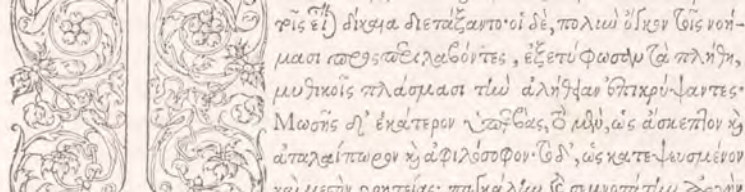 εἶναι δίκαια διετάξαντο· οἱ δὲ, πολιὼ ὄγκον τοῖς νοή-
μασι προσπεριλαβόντες, ἐξετύφωσαν τὰ πλήθη,
μυθικοῖς πλάσμασι τὴν ἀλήθειαν ἐπικρύψαντες·
Μωσῆς δ' ἑκάτερον ὑπερβὰς, τὸ μὲν, ὡς ἄσκεπτον καὶ
ἀταλαίπωρον καὶ ἀφιλόσοφον· τὸ δ', ὡς κατεψευσμένον
καὶ μεστὸν γοητείας· παγκάλην καὶ σεμνοτάτην